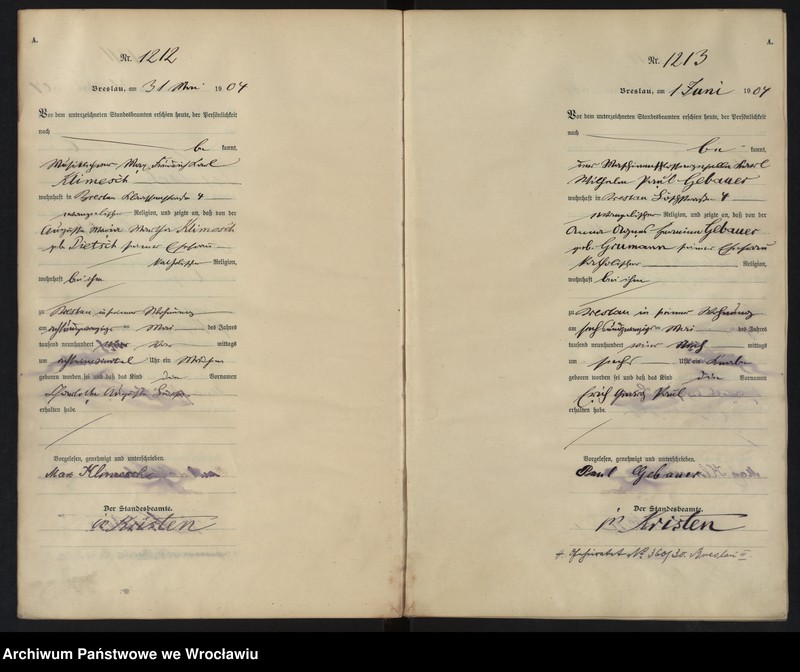 A.
Nr. 1212
Breslau, am 31 Mai 1904
Vor dem unterzeichneten Standesbeamten erschien heute, der Persönlichkeit
nach
be kannt,
Max Friedrich Karl
Klimesch
wohnhaft in Breslau 4
evangelischer Religion, und zeigte an, daß von der
Auguste Maria Martha Klimesch
geb. Pietsch seiner Ehefrau
katholischer Religion,
wohnhaft bei ihm
zu Breslau in seiner Wohnung
am achtundzwanzigsten Mai des Jahres
tausend neunhundert vier Vor mittags
um Uhr ein Mädchen
geboren worden sei und daß das Kind die Vornamen
Charlotte Auguste
erhalten habe.
Vorgelesen, genehmigt und unterschrieben.
Max Klimesch
Der Standesbeamte.
iV Kristen
A.
Nr. 1213
Breslau, am 1 Juni 1904
Vor dem unterzeichneten Standesbeamten erschien heute, der Persönlichkeit
nach
be kannt,
der Maschinenschlossergeselle Karl
Wilhelm Paul Gebauer
wohnhaft in Breslau 4
evangelischer Religion, und zeigte an, daß von der
Anna Agnes Hermine Gebauer
geb. Grumann seiner Ehefrau
katholischer Religion,
wohnhaft bei ihm
zu Breslau in seiner Wohnung
am sechsundzwanzigsten Mai des Jahres
tausend neunhundert vier Nach mittags
um sechs Uhr ein Knabe
geboren worden sei und daß das Kind die Vornamen
Erich Georg Paul
erhalten habe.
Vorgelesen, genehmigt und unterschrieben.
Paul Gebauer
Der Standesbeamte.
iV Kristen
Geheiratet No 360/30. Breslau II.
Archiwum Państwowe we Wrocławiu